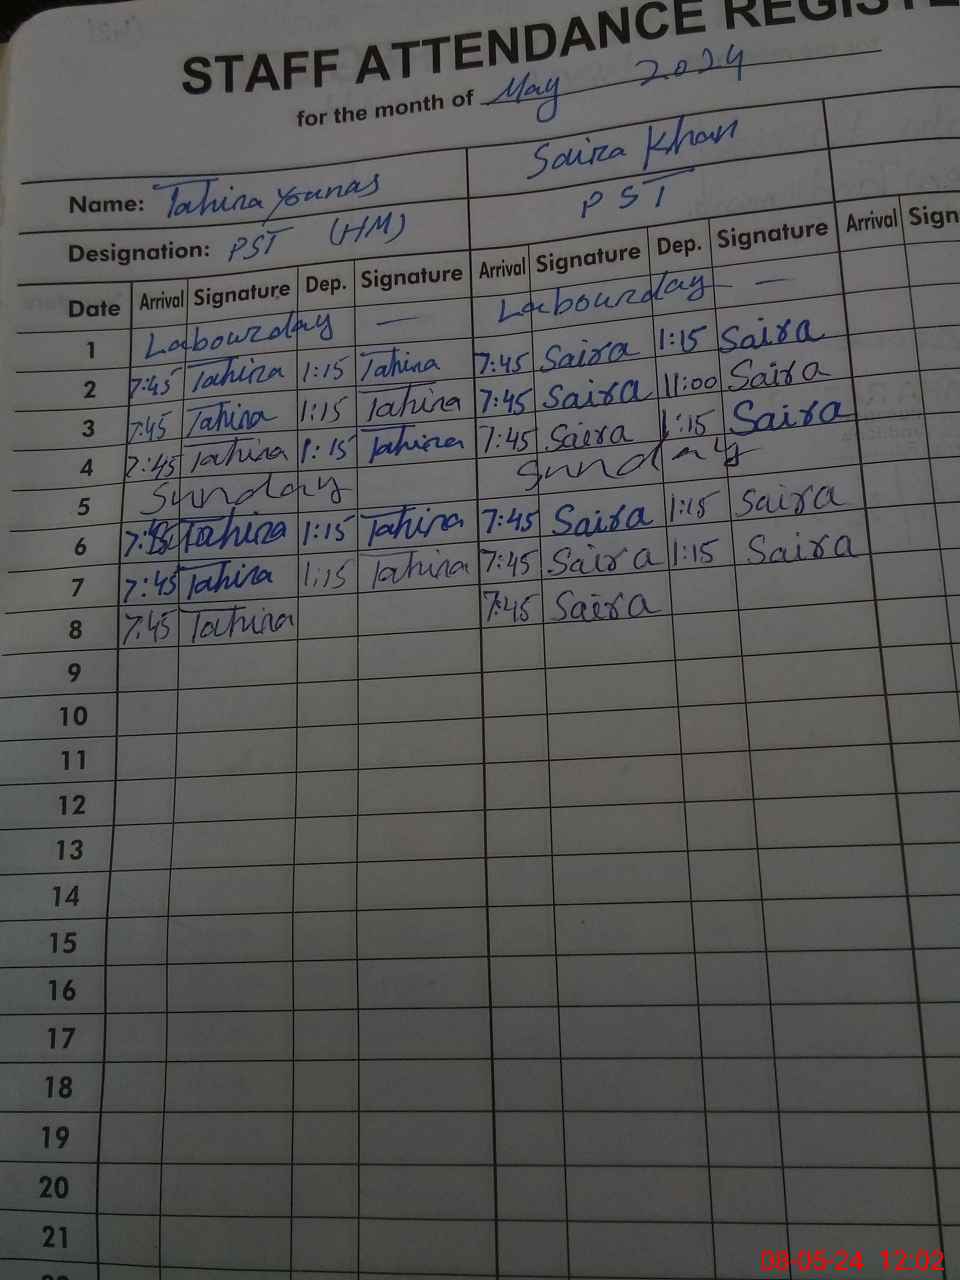 STAFF ATTENDANCE REGISTE
for the month of May 2024
Name: Tahira Younas Saira Khan
Designation: PST (HM) PST
Date Arrival Signature Dep. Signature Arrival Signature Dep. Signature Arrival Sign
1 Labourday — Labourday —
2 7:45 Tahira 1:15 Tahira 7:45 Saira 1:15 Saira
3 7:45 Tahira 1:15 Tahira 7:45 Saira 11:00 Saira
4 7:45 Tahira 1:15 Tahira 7:45 Saira 1:15 Saira
5 Sunday Sunday
6 7:45 Tahira 1:15 Tahira 7:45 Saira 1:15 Saira
7 7:45 Tahira 1:15 Tahira 7:45 Saira 1:15 Saira
8 7:45 Tahira 7:45 Saira
9
10
11
12
13
14
15
16
17
18
19
20
21
08-05-24 12:02